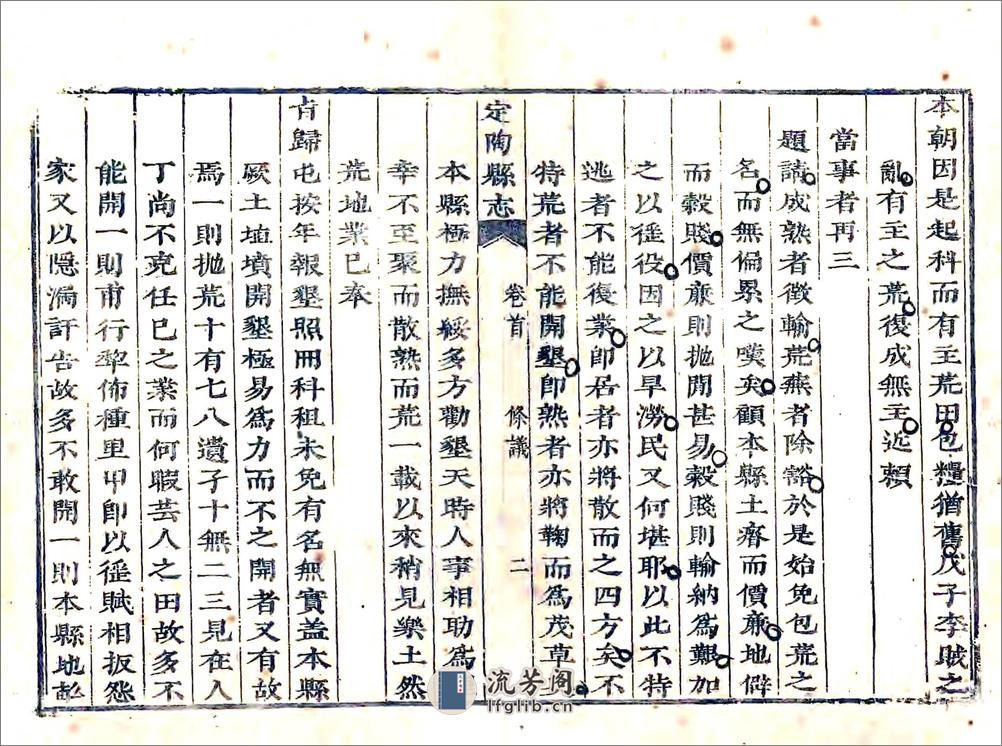 本朝因是起科而有主荒田包糧猶舊戊子李賊之
亂有主之荒復成無主近賴
當事者再三
題請成熟者徵輸荒蕪者除豁於是始免包荒之
名而無偏累之嘆矣顧本縣土瘠而價廉地僻
而穀賤價廉則拋閒甚易穀賤則輸納為艱加
之以徭役因之以旱澇民又何堪耶以此不特
逃者不能復業卽居者亦將散而之四方矣不
特荒者不能開墾卽熟者亦將鞠而為茂草
定陶縣志 卷首 條議 二
本縣極力撫綏多方勸墾天時人事相助為
幸不至聚而散熟而荒一載以來稍見樂土然
荒地業已奉
旨歸屯按年報墾照冊科租未免有名無實蓋本縣
厥土埴墳開墾極易為力而不之開者又有故
焉一則拋荒十有七八遺孑十無二三見在人
丁尚不克任已之業而何暇芸人之田故多不
能開一則甫行犂佈種里甲卽以徭賦相扳怨
家又以隱漏訐告故多不敢開一則本縣地
流芳阁
lfglib.cn